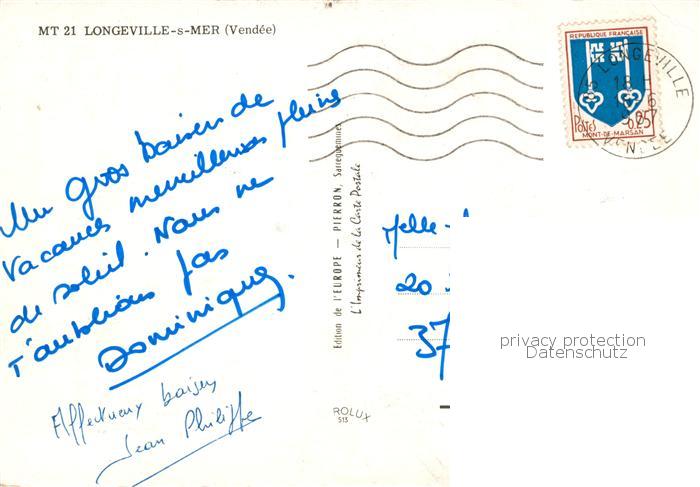 MT 21 LONGEVILLE-s-MER (Vendée)
Un gros baiser de
vacances merveilleuses pleins
de soleil. Nous ne
t'oublions pas
Dominique.
Affectueux baisers
Jean Philippe
Edition de l'EUROPE — PIERRON, Sarreguemines
L'Imprimeur de la Carte Postale
ROLUX
513
REPUBLIQUE FRANÇAISE
Postes 0,25
MONT-DE-MARSAN
LONGEVILLE
18 H
VENDÉE
Melle
20
37
privacy protection
Datenschutz